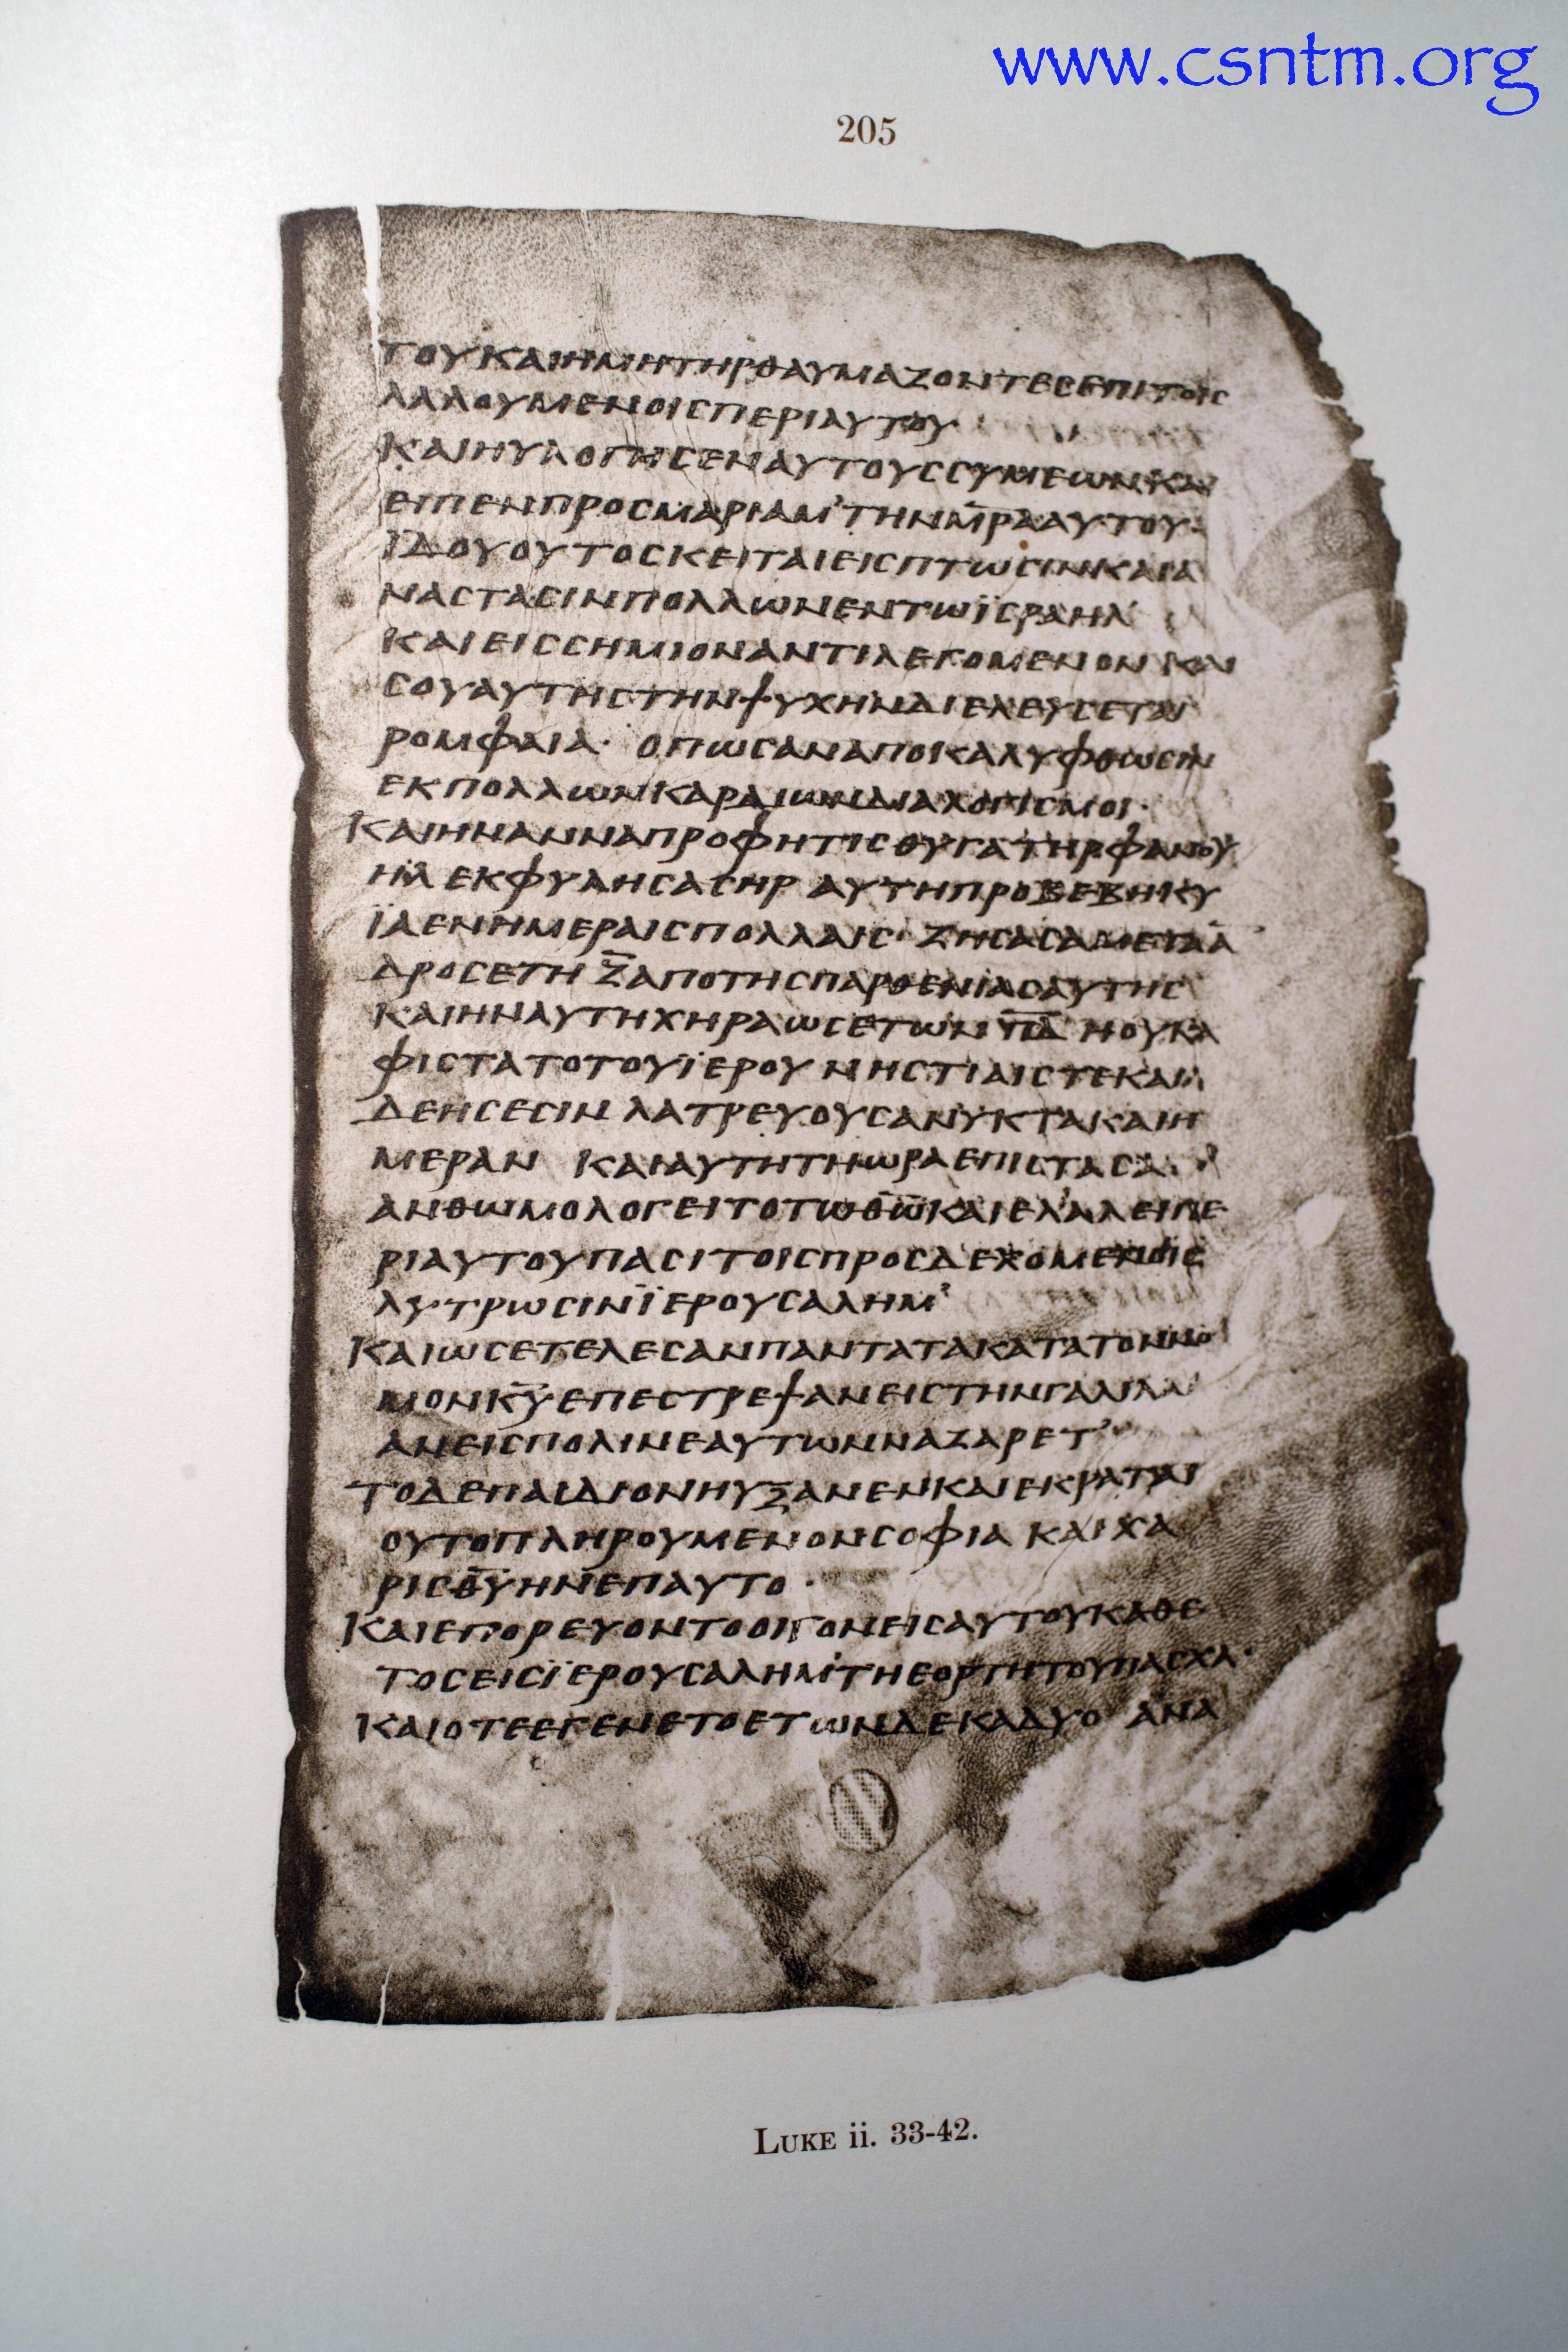 www.csntm.org
205
ΤΟΥΚΑΙΗΜΗΤΗΡΘΑΥΜΑΖΟΝΤΕCΕΠΙΤΟΙC
ΛΑΛΟΥΜΕΝΟΙCΠΕΡΙΑΥΤΟΥ·
ΚΑΙΗΥΛΟΓΗCΕΝΑΥΤΟΥCCΥΜΕΩΝΚΑΙ
ΕΙΠΕΝΠΡΟCΜΑΡΙΑΜ’ΤΗΝΜ̅Ρ̅Α̅ΑΥΤΟΥ·
ΙΔΟΥΟΥΤΟCΚΕΙΤΑΙΕΙCΠΤΩCΙΝΚΑΙΑ
ΝΑCΤΑCΙΝΠΟΛΛΩΝΕΝΤΩΪCΡΑΗΛ’
ΚΑΙΕΙCCΗΜΙΟΝΑΝΤΙΛΕΓΟΜΕΝΟΝΚΑΙ
CΟΥΑΥΤΗCΤΗΝΨΥΧΗΝΔΙΕΛΕΥCΕΤΑΙ
ΡΟΜΦΑΙΑ· ΟΠΩCΑΝΑΠΟΚΑΛΥΦΘΩCΙΝ
ΕΚΠΟΛΛΩΝΚΑΡΔΙΩΝΔΙΑΛΟΓΙCΜΟΙ·
ΚΑΙΗΝΑΝΝΑΠΡΟΦΗΤΙCΘΥΓΑΤΗΡΦΑΝΟΥ
ΗΛ ΕΚΦΥΛΗCΑCΗΡ ΑΥΤΗΠΡΟΒΕΒΗΚΥ
ΪΑΕΝΗΜΕΡΑΙCΠΟΛΛΑΙC· ΖΗCΑCΑΜΕΤΑΑ̅
ΔΡΟCΕΤΗ Ζ̅ΑΠΟΤΗCΠΑΡΘΕΝΙΑCΑΥΤΗC
ΚΑΙΗΝΑΥΤΗΧΗΡΑΩCΕΤΩΝΠ̅Δ̅ ΗΟΥΚΑ
ΦΙCΤΑΤΟΤΟΥΪΕΡΟΥ ΝΗCΤΙΑΙCΤΕΚΑΙ
ΔΕΗCΕCΙΝ ΛΑΤΡΕΥΟΥCΑΝΥΚΤΑΚΑΙΗ
ΜΕΡΑΝ ΚΑΙΑΥΤΗΤΗΩΡΑΕΠΙCΤΑCΑ
ΑΝΘΩΜΟΛΟΓΕΙΤΟΤΩΘ̅Ω̅ΚΑΙΕΛΑΛΕΙΠΕ
ΡΙΑΥΤΟΥΠΑCΙΤΟΙCΠΡΟCΔΕΧΟΜΕΝΟΙC
ΛΥΤΡΩCΙΝΪΕΡΟΥCΑΛΗΜ’
ΚΑΙΩCΕΤΕΛΕCΑΝΠΑΝΤΑΤΑΚΑΤΑΤΟΝΝΟ
ΜΟΝΚ̅Υ̅·ΕΠΕCΤΡΕΨΑΝΕΙCΤΗΝΓΑΛΙΛΑΙ
ΑΝΕΙCΠΟΛΙΝΕΑΥΤΩΝΝΑΖΑΡΕΤ’
ΤΟΔΕΠΑΙΔΙΟΝΗΥΞΑΝΕΝΚΑΙΕΚΡΑΤΑΙ
ΟΥΤΟΠΛΗΡΟΥΜΕΝΟΝCΟΦΙΑ ΚΑΙΧΑ
ΡΙCΘ̅Υ̅ΗΝΕΠΑΥΤΟ·
ΚΑΙΕΠΟΡΕΥΟΝΤΟΟΙΓΟΝΕΙCΑΥΤΟΥΚΑΘΕ
ΤΟCΕΙCΪΕΡΟΥCΑΛΗΜ’ΤΗΕΟΡΤΗΤΟΥΠΑCΧΑ·
ΚΑΙΟΤΕΕΓΕΝΕΤΟΕΤΩΝΔΕΚΑΔΥΟ ΑΝΑ
LUKE ii. 33-42.